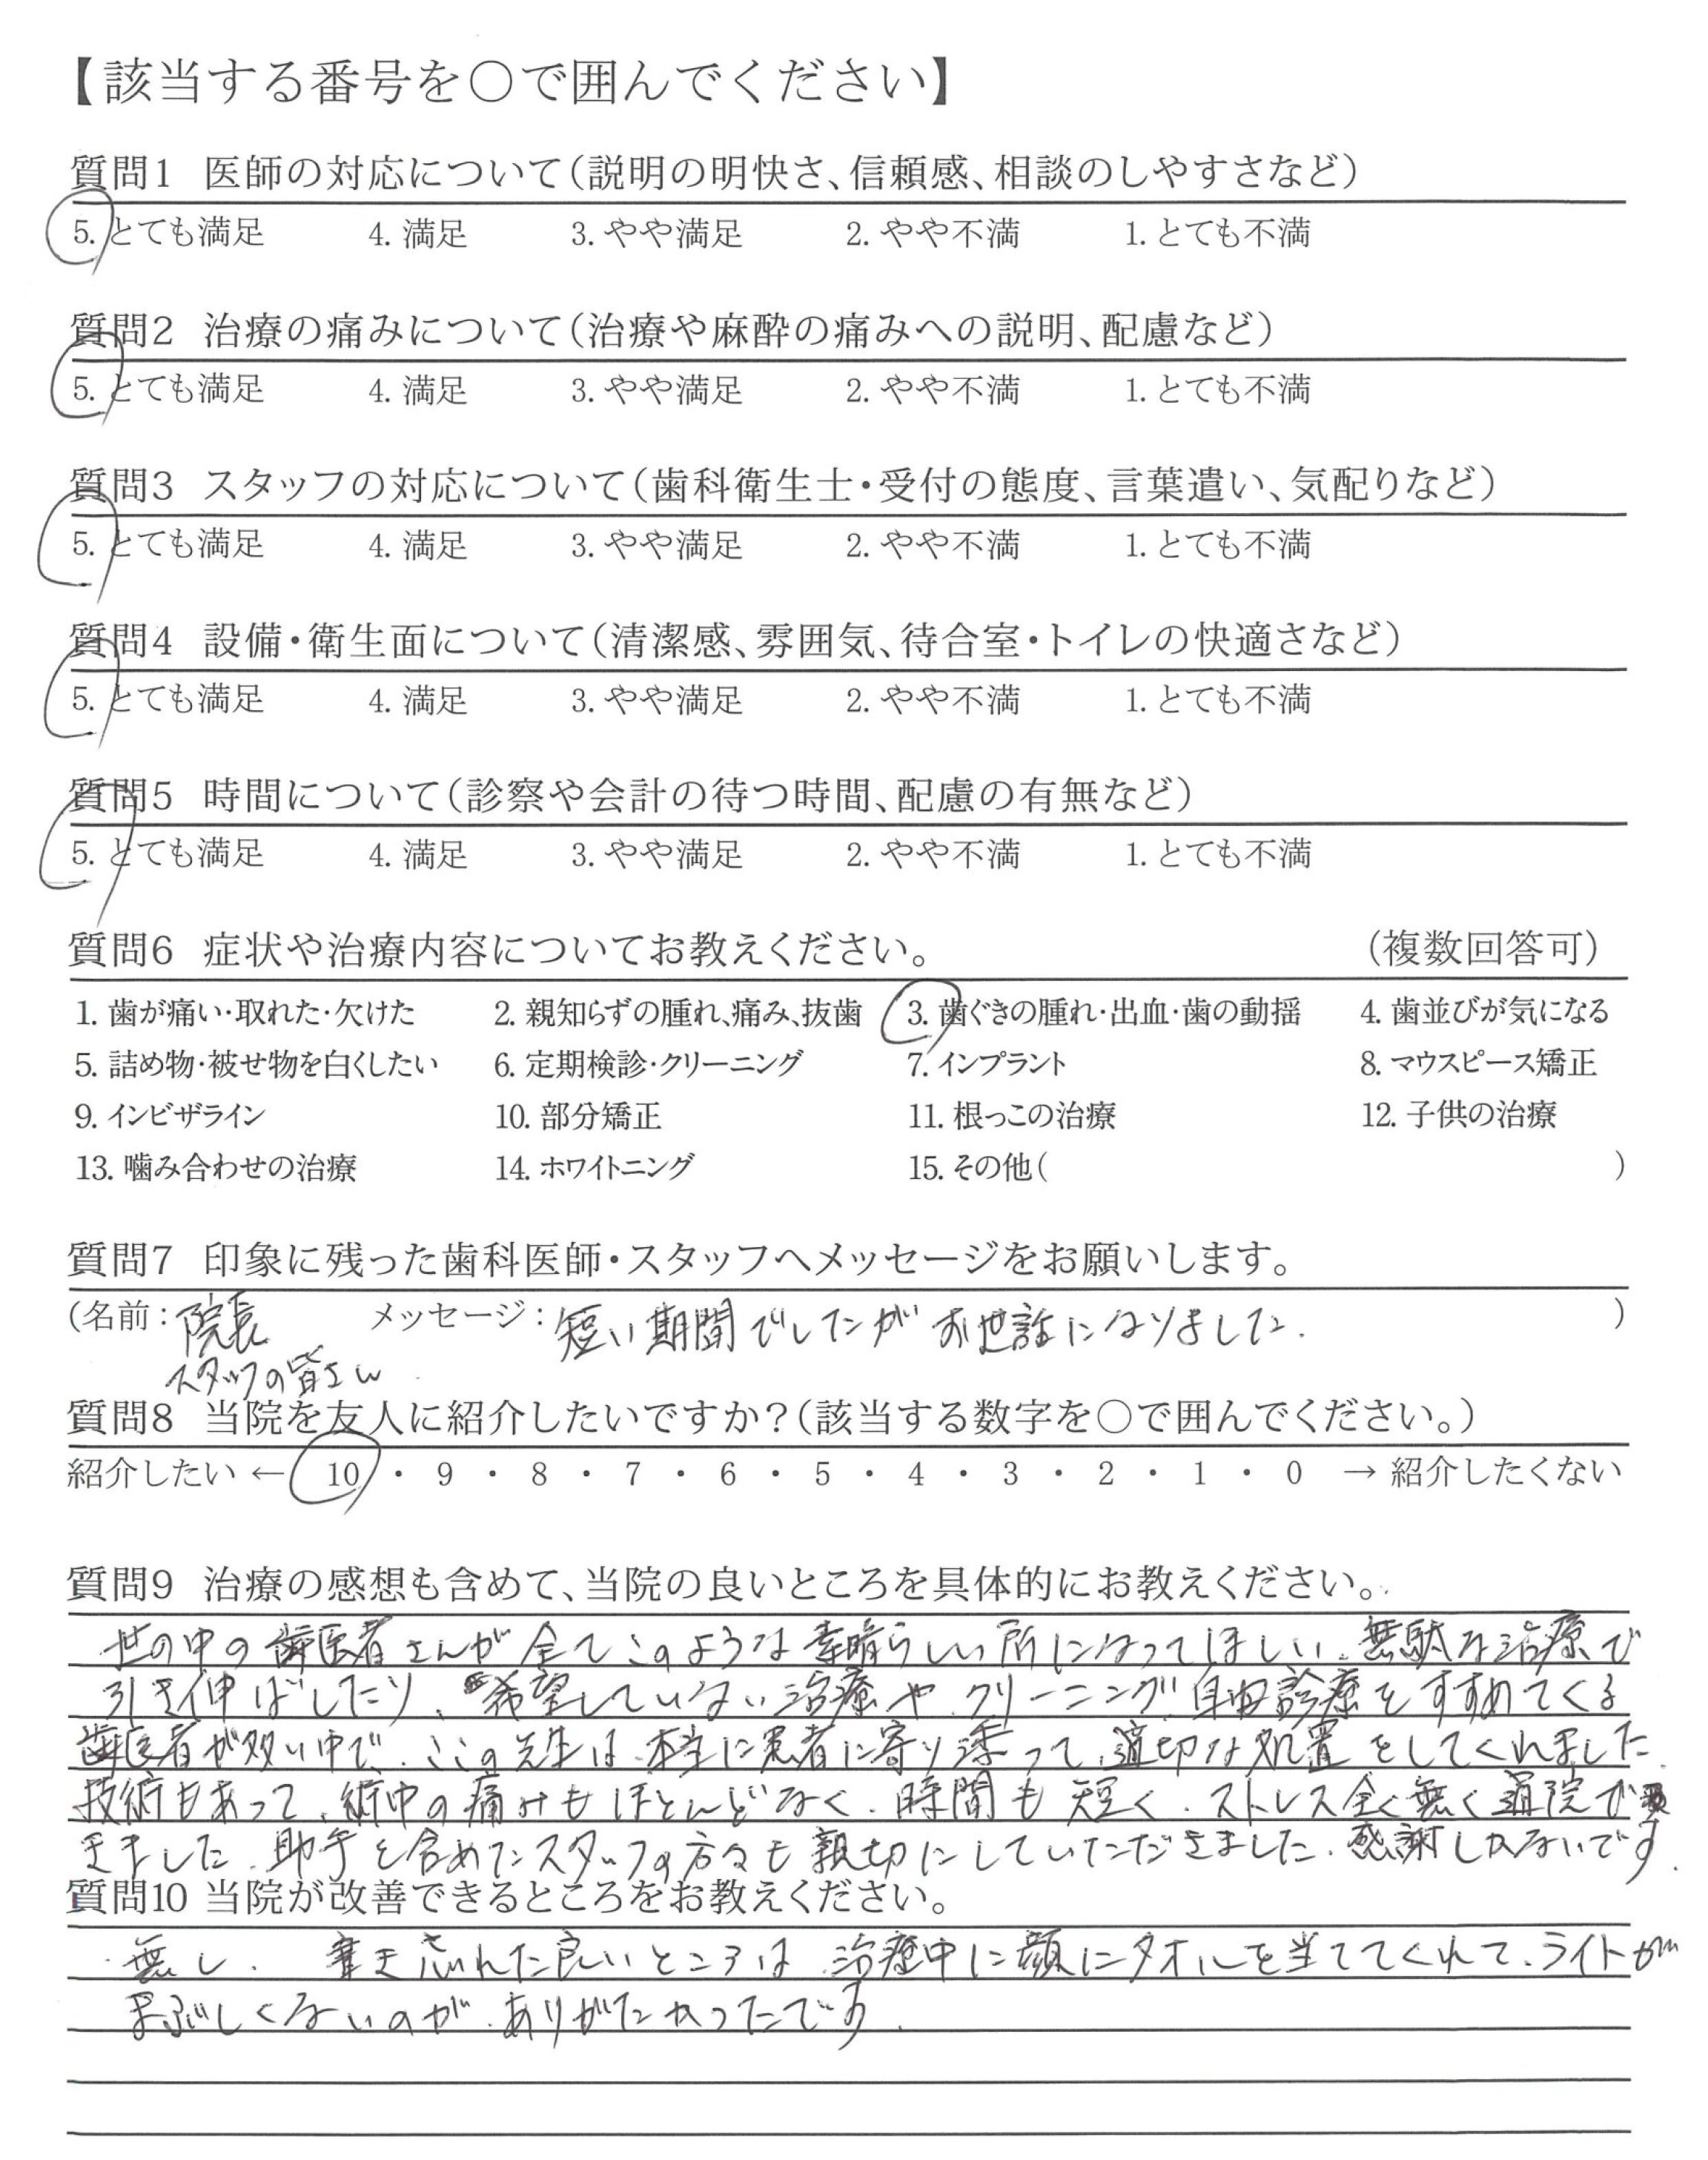 【該当する番号を○で囲んでください】
質問1 医師の対応について(説明の明快さ、信頼感、相談のしやすさなど)
5. とても満足 4. 満足 3. やや満足 2. やや不満 1. とても不満
質問2 治療の痛みについて(治療や麻酔の痛みへの説明、配慮など)
5. とても満足 4. 満足 3. やや満足 2. やや不満 1. とても不満
質問3 スタッフの対応について(歯科衛生士・受付の態度、言葉遣い、気配りなど)
5. とても満足 4. 満足 3. やや満足 2. やや不満 1. とても不満
質問4 設備・衛生面について(清潔感、雰囲気、待合室・トイレの快適さなど)
5. とても満足 4. 満足 3. やや満足 2. やや不満 1. とても不満
質問5 時間について(診察や会計の待つ時間、配慮の有無など)
5. とても満足 4. 満足 3. やや満足 2. やや不満 1. とても不満
質問6 症状や治療内容についてお教えください。 (複数回答可)
1. 歯が痛い・取れた・欠けた 2. 親知らずの腫れ、痛み、抜歯 3. 歯ぐきの腫れ・出血・歯の動揺 4. 歯並びが気になる
5. 詰め物・被せ物を白くしたい 6. 定期検診・クリーニング 7. インプラント 8. マウスピース矯正
9. インビザライン 10. 部分矯正 11. 根っこの治療 12. 子供の治療
13. 噛み合わせの治療 14. ホワイトニング 15. その他( )
質問7 印象に残った歯科医師・スタッフへメッセージをお願いします。
(名前: 院長 メッセージ: 短い期間でしたがお世話になりました. )
スタッフの皆さん
質問8 当院を友人に紹介したいですか?(該当する数字を○で囲んでください。)
紹介したい ← 10 ・ 9 ・ 8 ・ 7 ・ 6 ・ 5 ・ 4 ・ 3 ・ 2 ・ 1 ・ 0 → 紹介したくない
質問9 治療の感想も含めて、当院の良いところを具体的にお教えください。
世の中の歯医者さんが全てこのような素晴らしい所になってほしい. 無駄な治療で
引き伸ばしたり、希望していない治療や、クリーニング、自由診療をすすめてくる
歯医者が多い中で、ここの先生は、本当に患者に寄り添って、適切な処置をしてくれました.
技術もあって、術中の痛みもほとんどなく、時間も短く、ストレス全く無く通院で
きました. 助手を含めたスタッフの方々も親切にしていただきました. 感謝しかないです.
質問10 当院が改善できるところをお教えください。
無し. 書き忘れた良いところは、治療中に顔にタオルを当ててくれて、ライトが
まぶしくないのが、ありがたかったです.